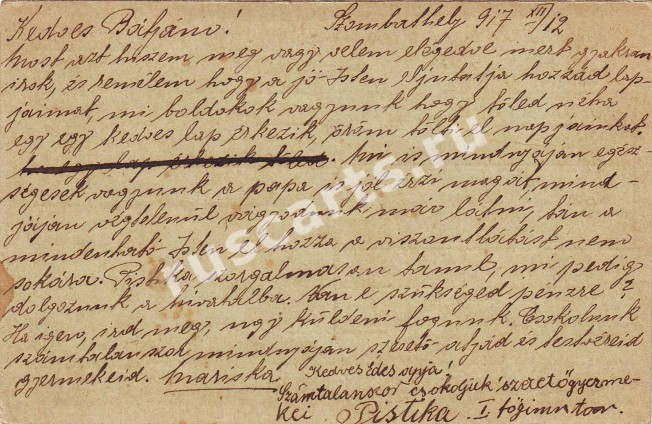 Kedves Bátyánó! Szombathely 917 XII/12
most azt hiszem meg vagy velem elégedve mert gyakran
irok, és remélem hogy a jó Isten eljutatja hozzád lap-
jaimat, mi boldokok vagyunk hogy tőled néha
egy egy kedves lap érkezik, öröm tölti el napjainkat.
Mi is mindnyájan egész-
ségesek vagyunk a papa is jól érzi magát, mind-
jájan végtelenül vágyodunk már látni, tán a
mindenható Isten el hozza a viszontlátást nem
sokára. Pistika szorgalmasan tanul, mi pedig
dolgozunk a hivatalba. Van e szükséged pénzre?
Ha igen, ird meg, ugy küldeni fogunk. Csokolunk
számtalanszor mindnyájan szerető atyád és testvéreid
gyermekeid. Mariska
Kedves Édes apja!
Számtalanszor csokoljuk szerető gyerme-
kei Pistika I főgimn tan.
ruscarts.ru